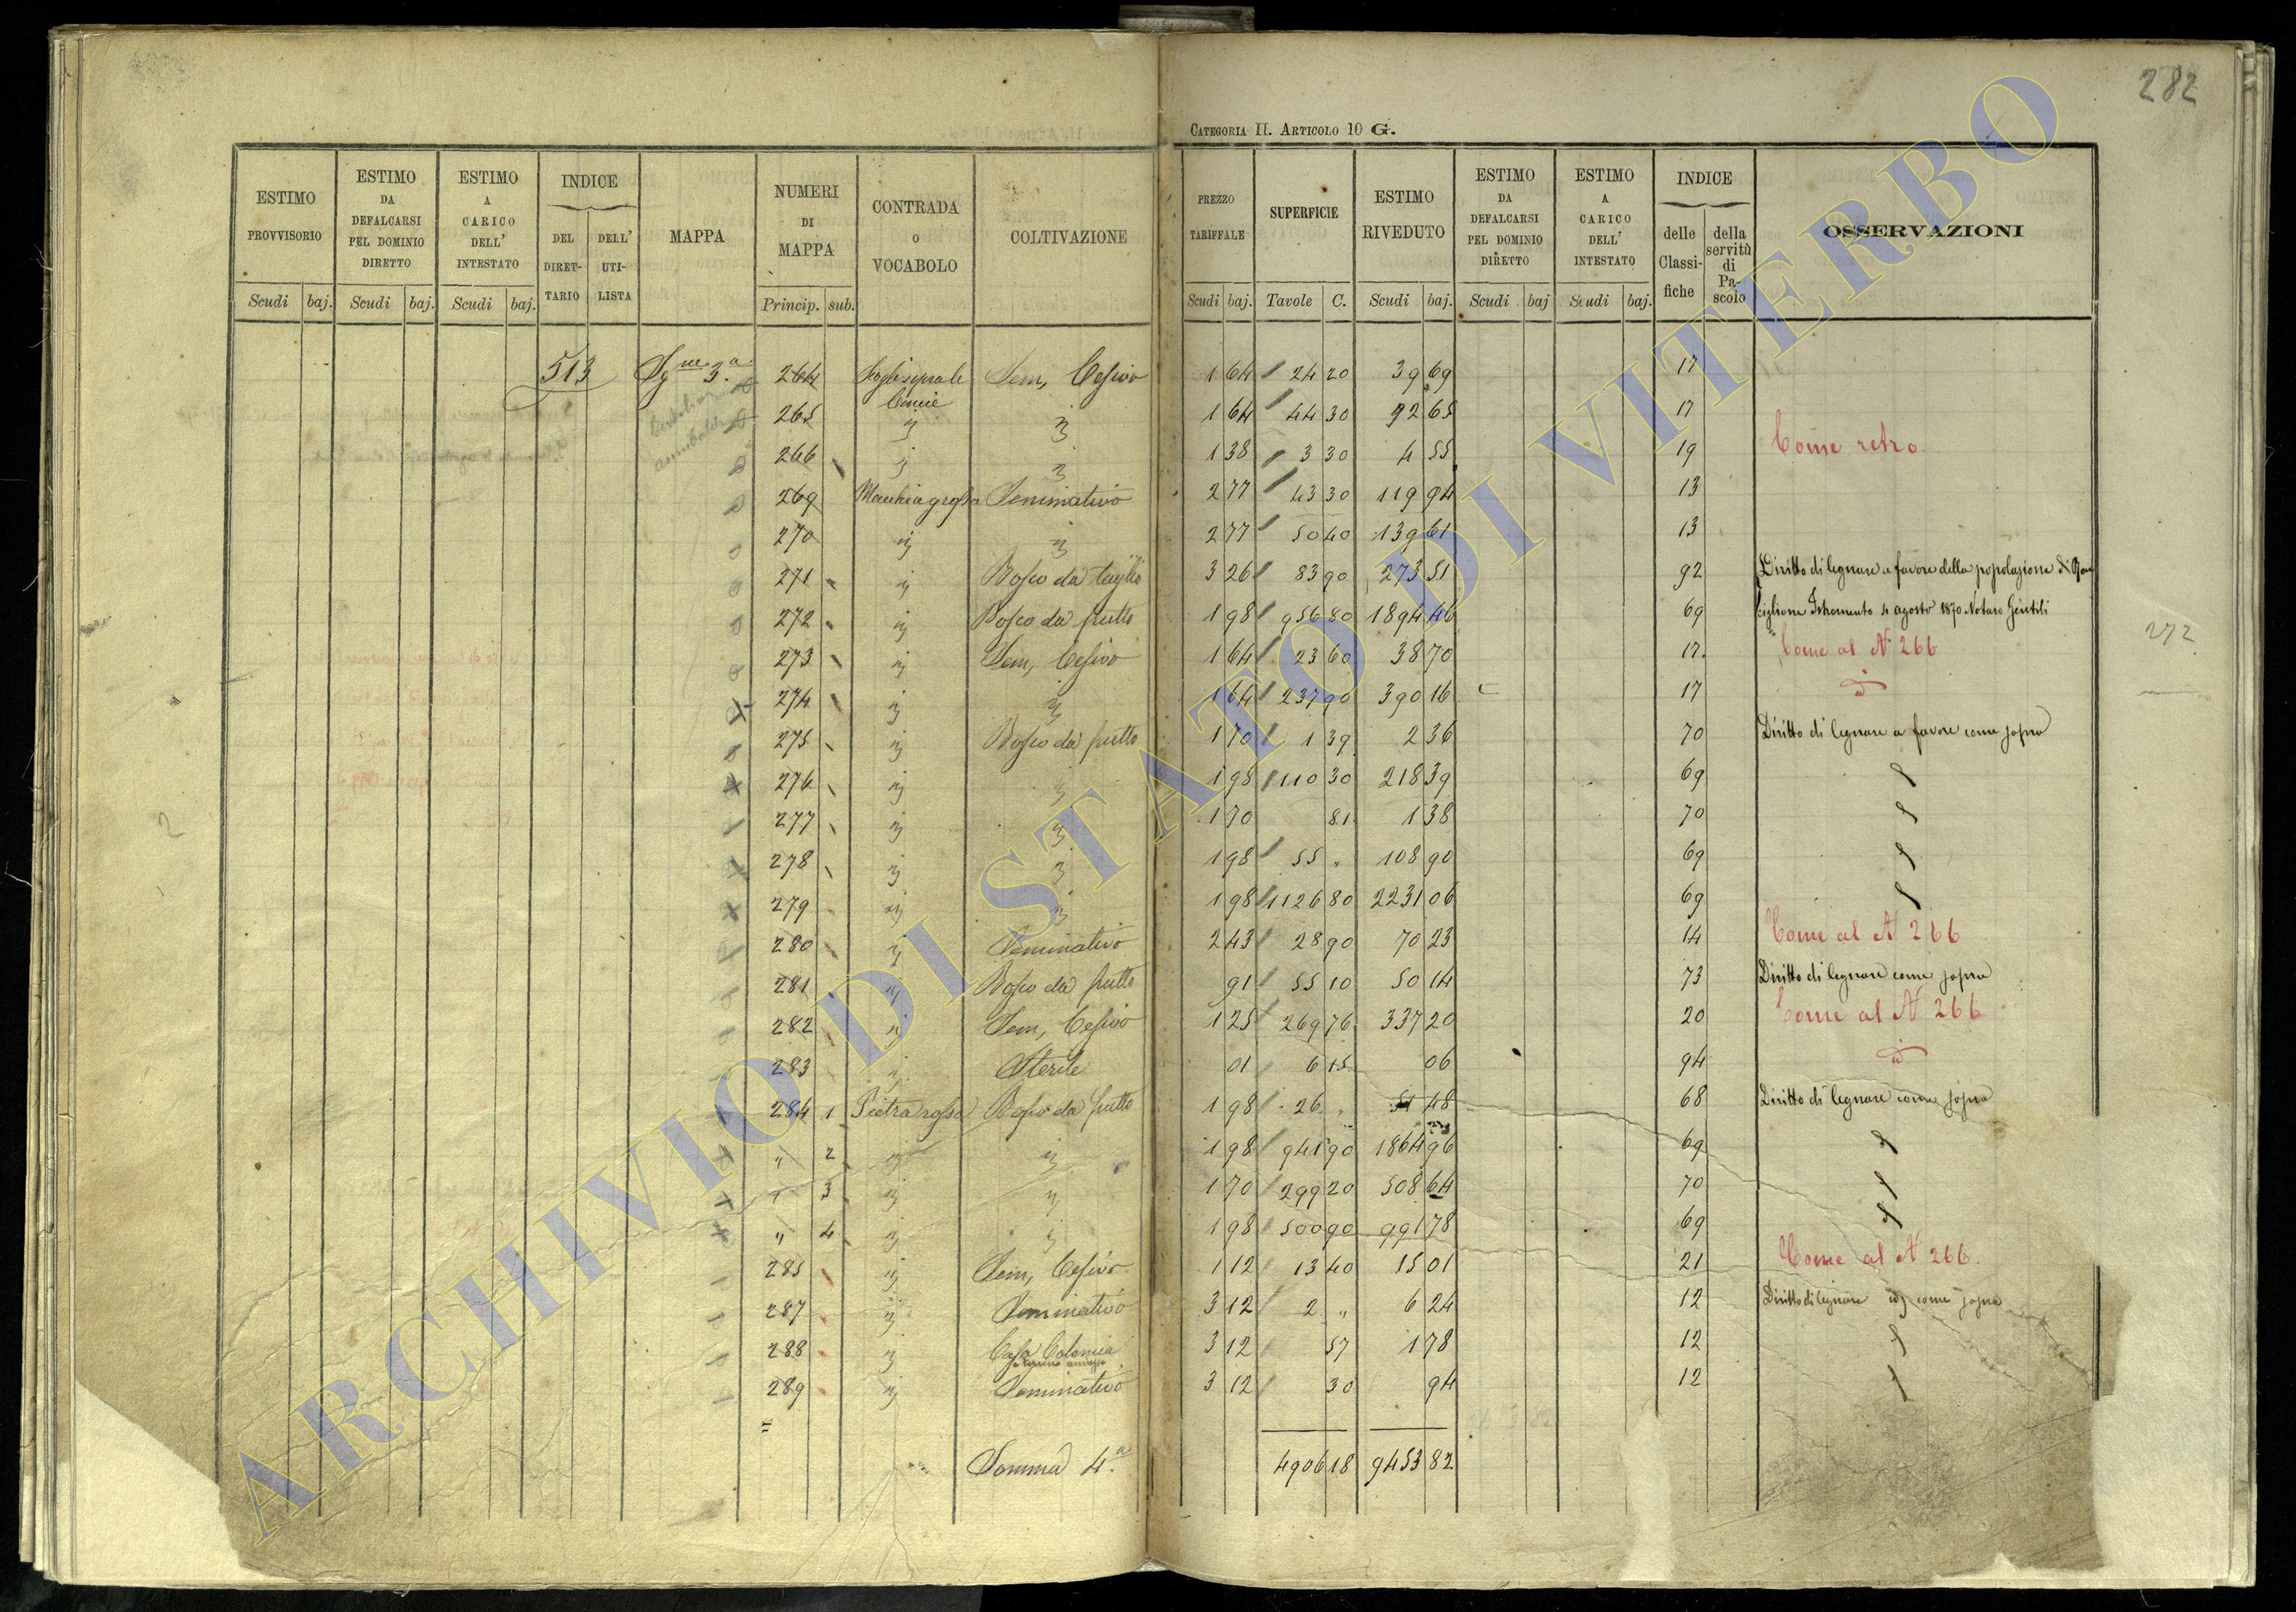 282
CATEGORIA II. ARTICOLO 10 G.
ESTIMO PROVVISORIO Scudi baj. | ESTIMO DA DEFALCARSI PEL DOMINIO DIRETTO Scudi baj. | ESTIMO A CARICO DELL' INTESTATO Scudi baj. | INDICE DEL DIRETTARIO DELL' UTILISTA | MAPPA | NUMERI DI MAPPA Princip. sub. | CONTRADA O VOCABOLO | COLTIVAZIONE | PREZZO TARIFFALE Scudi baj. | SUPERFICIE Tavole C. | ESTIMO RIVEDUTO Scudi baj. | ESTIMO DA DEFALCARSI PEL DOMINIO DIRETTO Scudi baj | ESTIMO A CARICO DELL' INTESTATO Scudi baj. | INDICE delle Classifiche della servitù di Pascolo | OSSERVAZIONI
513 3.a 264 Sem, Cesivo 1 64 24 20 39 69 17
265 " " 1 64 44 30 92 65 17
266 " " 1 38 3 30 4 55 19 Come retro
269 Macchia grossa Seminativo 2 77 43 30 119 94 13
270 " " 2 77 50 40 139 61 13
271 " Bosco da taglio 3 26 83 90 273 51 92 Diritto di legnare a favore della popolazione di Ron
272 " Bosco da frutto 1 98 956 80 1894 46 69 ciglione Istromento 4 agosto 1870 Notaro Gentili
272
273 " Sem, Cesivo 1 64 23 60 38 70 17 Come al N 266
274 " " 1 64 237 90 390 16 17 id
275 " Bosco da frutto 1 70 1 39 2 36 70 Diritto di legnare a favore come sopra
276 " " 1 98 110 30 218 39 69
277 " " 1 70 81 1 38 70
278 " " 1 98 55 " 108 90 69
279 " " 1 98 1126 80 2231 06 69
280 " Seminativo 2 43 28 90 70 23 14 Come al N 266
281 " Bosco da frutto 91 55 10 50 14 73 Diritto di legnare come sopra
282 " Sem, Cesivo 1 25 269 76 337 20 20 Come al N 266
283 " Sterile 01 6 15 06 94 id
284 1 Pietra rossa Bosco da frutto 1 98 26 " 51 48 68 Diritto di legnare come sopra
" 2 " " 1 98 941 90 1864 96 69
" 3 " " 1 70 299 20 508 64 70
" 4 " " 1 98 500 90 991 78 69
285 " Sem, Cesivo 1 12 13 40 15 01 21 Come al N 266
287 " Seminativo 3 12 2 " 6 24 12 Diritto di legnare id come sopra
288 " Casa Colonica 3 12 57 1 78 12
289 " Seminativo 3 12 30 94 12
Somma 4.a 4906 18 9453 82
ARCHIVIO DI STATO DI VITERBO